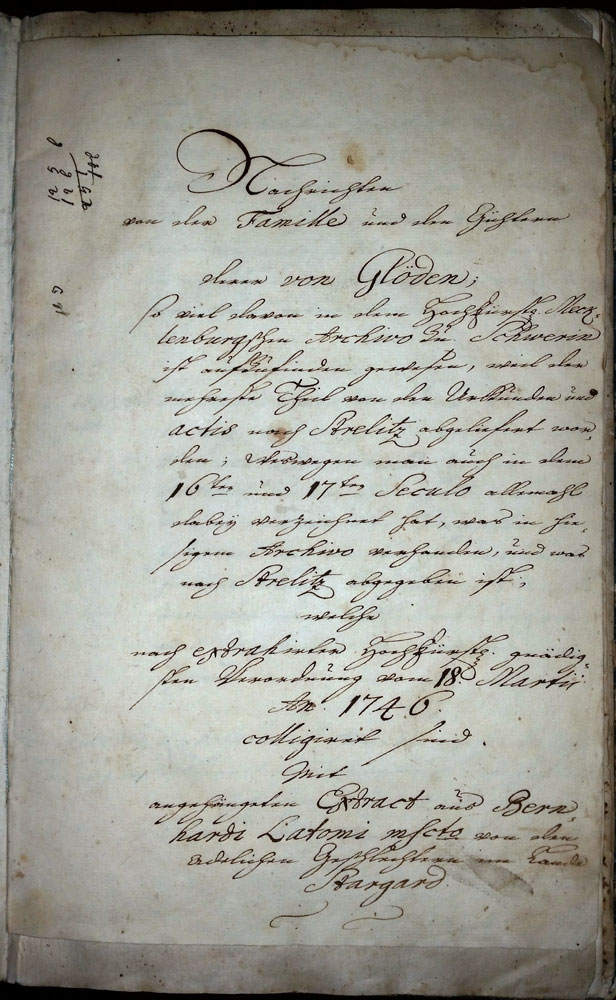 Nachrichten
von der Familie und den Gühtern
derer von Glöden;
so viel davon in dem Hochfürstl. Meck-
lenburgschen Archivo zu Schwerin
ist aufzufinden gewesen, weil der
mehreste Theil von den Urkunden und
actis nach Strelitz abgeliefert wor-
den; deswegen man auch in dem
16ten und 17ten Seculo allemahl
dabey verzeichnet hat, was in hie-
sigem Archivo verhanden, und was
nach Strelitz abgegeben ist;
welche
nach extrahirter Hochfürstl. gnädig-
sten Verordnung vom 18. Martii
An. 1746.
colligiret sind.
Mit
angehängeten Extract aus Bern-
hardi Latomi mscto von den
adelichen Geschlechtern im Lande
Stargard.